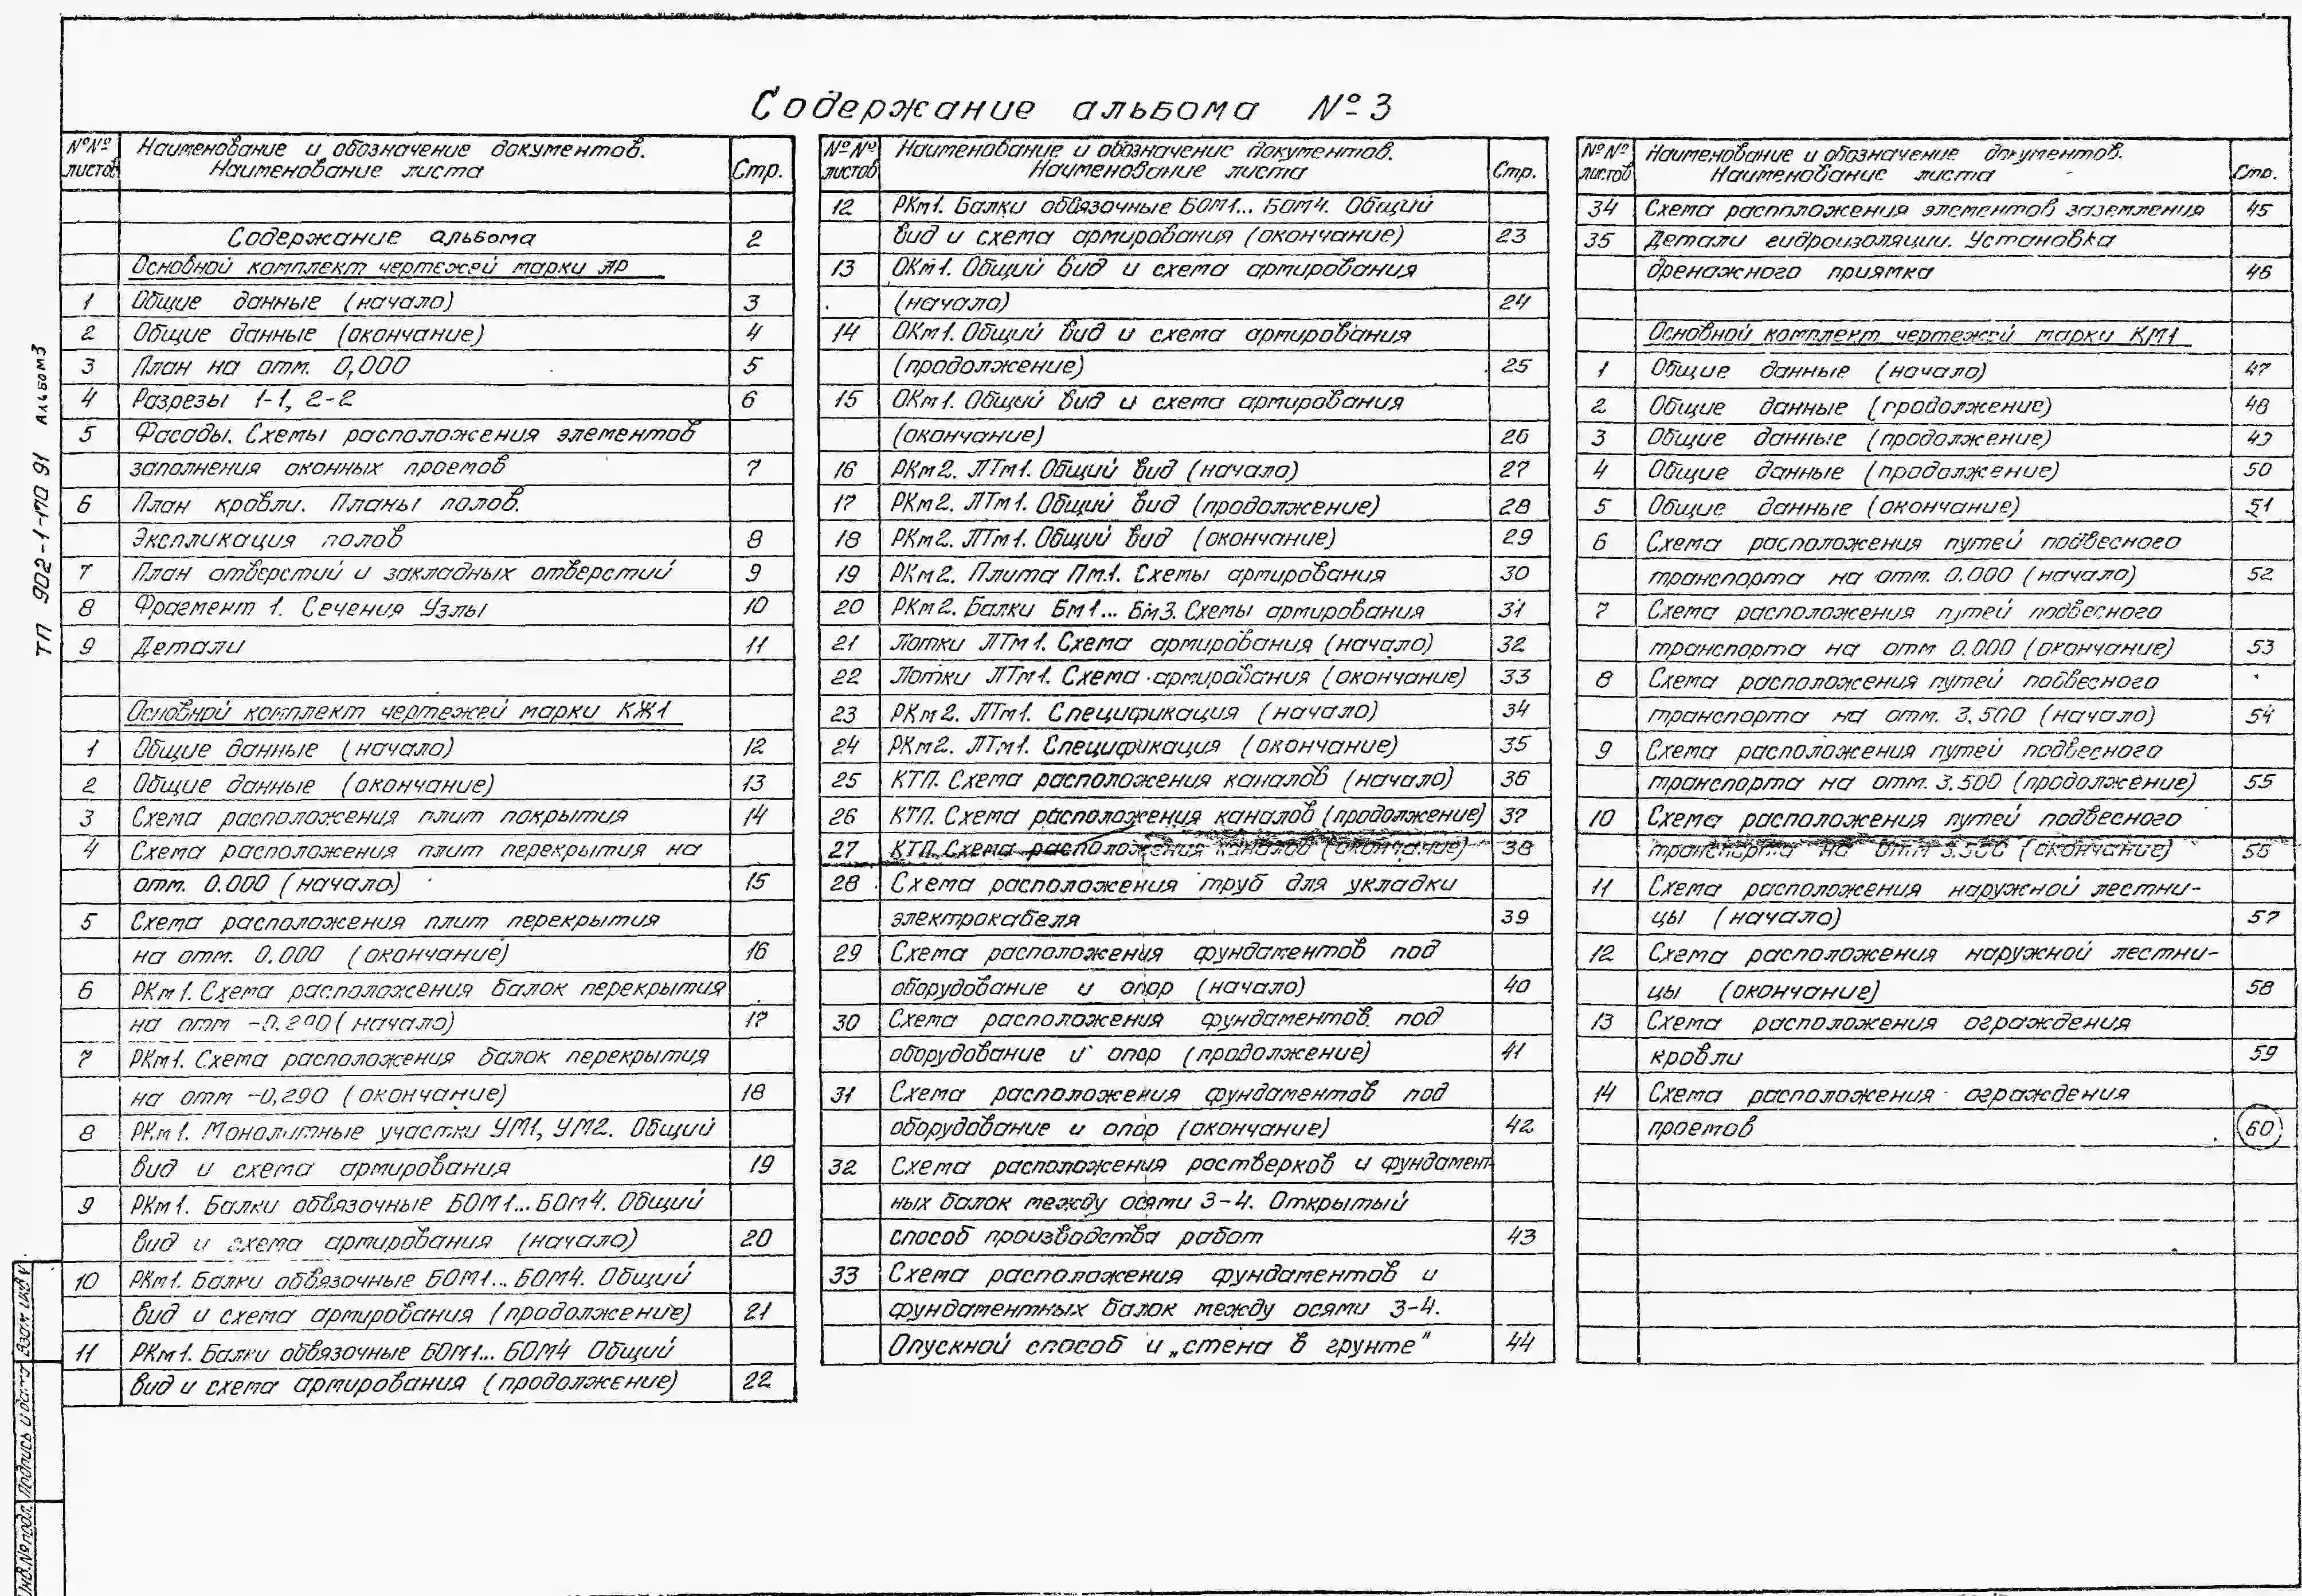 Содержание альбома №3
№№ Наименование и обозначение документов.
листов Наименование листа Стр.
Содержание альбома 2
Основной комплект чертежей марки АР
1 Общие данные (начало) 3
2 Общие данные (окончание) 4
3 План на отм. 0,000 5
4 Разрезы 1-1, 2-2 6
5 Фасады. Схемы расположения элементов
заполнения оконных проемов 7
6 План кровли. Планы полов.
Экспликация полов 8
7 План отверстий и закладных отверстий 9
8 Фрагмент 1. Сечения Узлы 10
9 Детали 11
Основной комплект чертежей марки КЖ1
1 Общие данные (начало) 12
2 Общие данные (окончание) 13
3 Схема расположения плит покрытия 14
4 Схема расположения плит перекрытия на
отм. 0.000 (начало) 15
5 Схема расположения плит перекрытия
на отм. 0.000 (окончание) 16
6 РКм1. Схема расположения балок перекрытия
на отм -0.290 (начало) 17
7 РКм1. Схема расположения балок перекрытия
на отм -0,290 (окончание) 18
8 РКм1. Монолитные участки УМ1, УМ2. Общий
вид и схема армирования 19
9 РКм1. Балки обвязочные БОМ1... БОм4. Общий
вид и схема армирования (начало) 20
10 РКм1. Балки обвязочные БОМ1... БОМ4. Общий
вид и схема армирования (продолжение) 21
11 РКм1. Балки обвязочные БОМ1... БОМ4 Общий
вид и схема армирования (продолжение) 22
№№ Наименование и обозначение документов.
листов Наименование листа Стр.
12 РКм1. Балки обвязочные БОМ1... БОМ4. Общий
вид и схема армирования (окончание) 23
13 ОКм1. Общий вид и схема армирования
(начало) 24
14 ОКм1. Общий вид и схема армирования
(продолжение) 25
15 ОКм1. Общий вид и схема армирования
(окончание) 26
16 РКм2. ЛТм1. Общий вид (начало) 27
17 РКм2. ЛТм1. Общий вид (продолжение) 28
18 РКм2. ЛТм1. Общий вид (окончание) 29
19 РКм2. Плита Пм1. Схемы армирования 30
20 РКм2. Балки Бм1... Бм3. Схемы армирования 31
21 Лотки ЛТм1. Схема армирования (начало) 32
22 Лотки ЛТм1. Схема армирования (окончание) 33
23 РКм2. ЛТм1. Спецификация (начало) 34
24 РКм2. ЛТм1. Спецификация (окончание) 35
25 КТП. Схема расположения каналов (начало) 36
26 КТП. Схема расположения каналов (продолжение) 37
27 КТП. Схема расположения каналов (окончание) 38
28 Схема расположения труб для укладки
электрокабеля 39
29 Схема расположения фундаментов под
оборудование и опор (начало) 40
30 Схема расположения фундаментов под
оборудование и опор (продолжение) 41
31 Схема расположения фундаментов под
оборудование и опор (окончание) 42
32 Схема расположения ростверков и фундамент
ных балок между осями 3-4. Открытый
способ производства работ 43
33 Схема расположения фундаментов и
фундаментных балок между осями 3-4.
Опускной способ и „стена в грунте" 44
№№ Наименование и обозначение документов.
листов Наименование листа Стр.
34 Схема расположения элементов заземления 45
35 Детали гидроизоляции. Установка
дренажного приямка 46
Основной комплект чертежей марки КМ1
1 Общие данные (начало) 47
2 Общие данные (продолжение) 48
3 Общие данные (продолжение) 49
4 Общие данные (продолжение) 50
5 Общие данные (окончание) 51
6 Схема расположения путей подвесного
транспорта на отм. 0.000 (начало) 52
7 Схема расположения путей подвесного
транспорта на отм 0.000 (окончание) 53
8 Схема расположения путей подвесного
транспорта на отм. 3.500 (начало) 54
9 Схема расположения путей подвесного
транспорта на отм. 3.500 (продолжение) 55
10 Схема расположения путей подвесного
транспорта на отм 3.500 (окончание) 56
11 Схема расположения наружной лестни-
цы (начало) 57
12 Схема расположения наружной лестни-
цы (окончание) 58
13 Схема расположения ограждения
кровли 59
14 Схема расположения ограждения
проемов 60
ТП 902-1-170 91 Альбом 3
Инв.№ подл. Подпись и дата Взам инв №